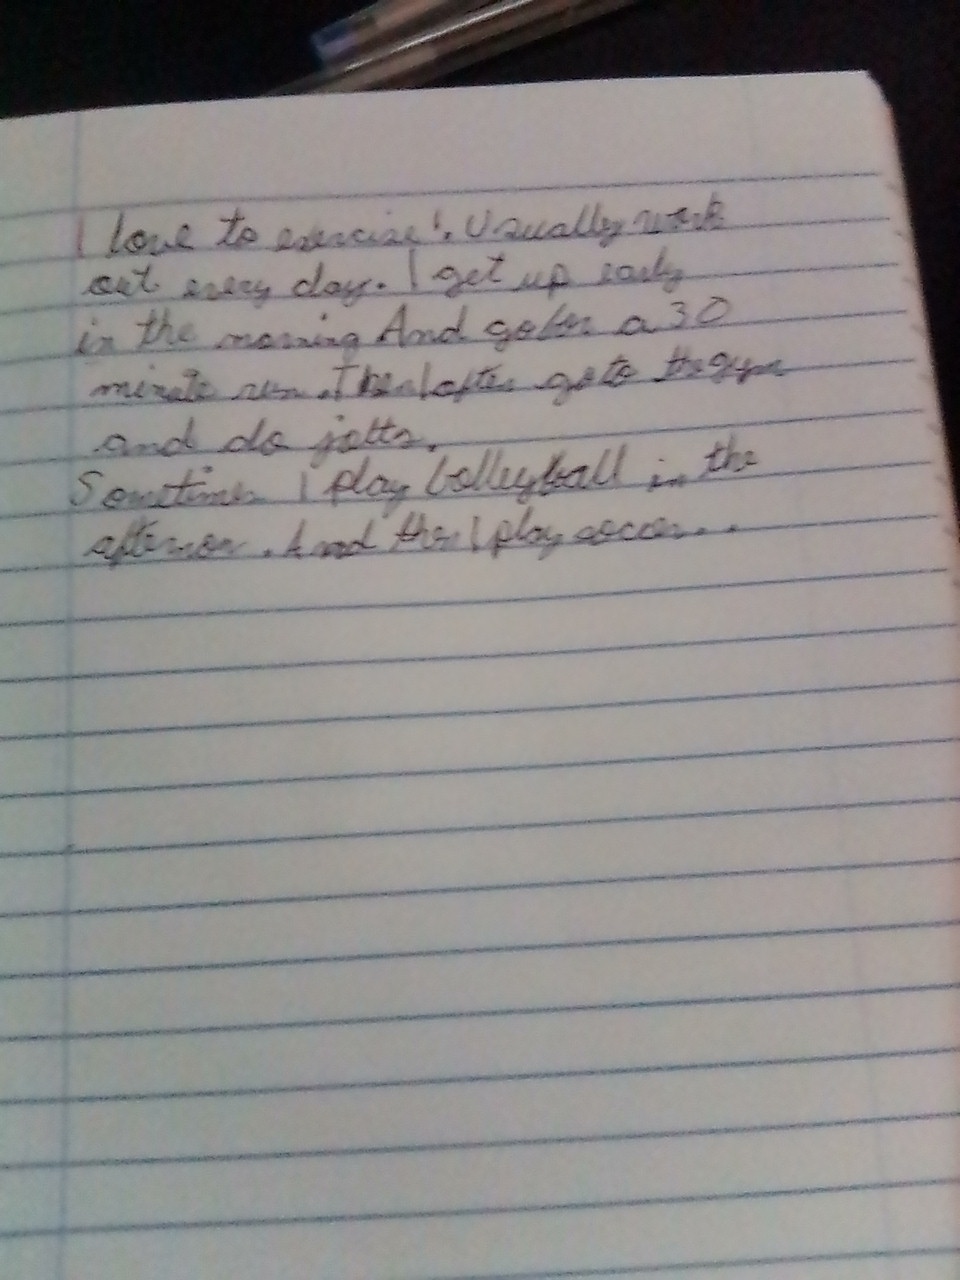 I love to exercise!. Usually work
out every day. I get up early
in the morning And go for a 30
minute run. Then I after go to the gym
and do
Sometimes I play volleyball in the
afternoon. And then I play soccer...